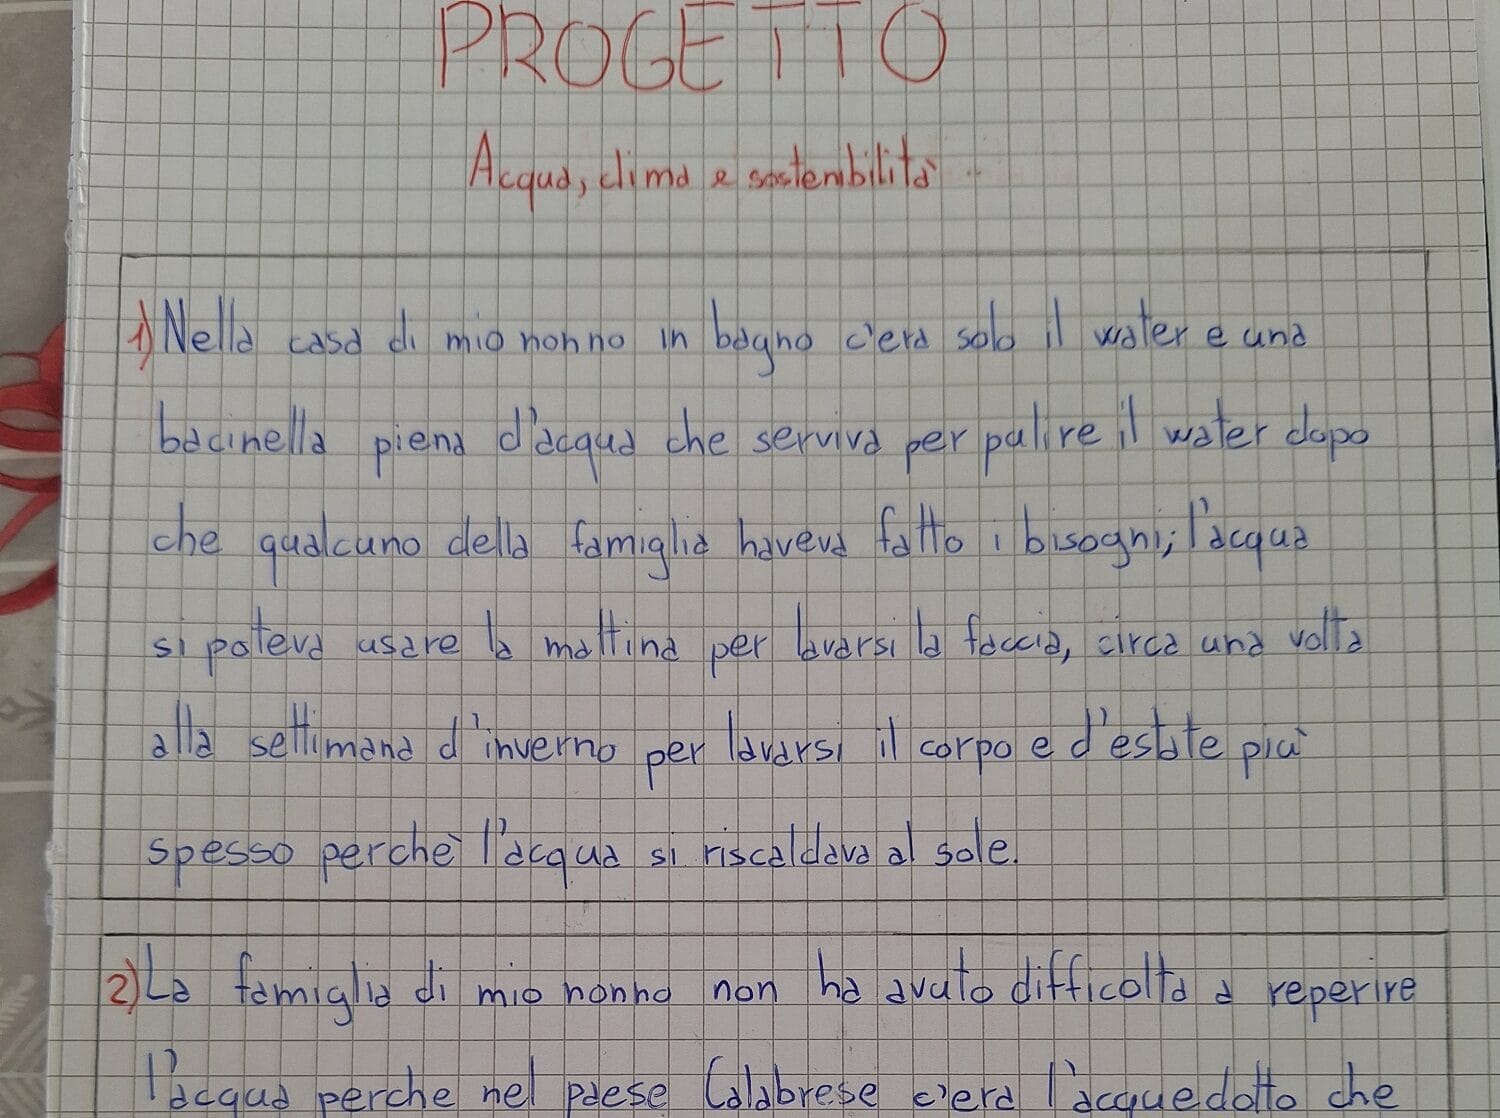 PROGETTO
Acqua, clima e sostenibilità
1) Nella casa di mio nonno in bagno c'era solo il water e una
bacinella piena d'acqua che serviva per pulire il water dopo
che qualcuno della famiglia haveva fatto i bisogni; l'acqua
si poteva usare la mattina per lavarsi la faccia, circa una volta
alla settimana d'inverno per lavarsi il corpo e d'estate più
spesso perchè l'acqua si riscaldava al sole.
2) La famiglia di mio nonno non ha avuto difficoltà a reperire
l'acqua perche nel paese Calabrese c'era l'acquedotto che